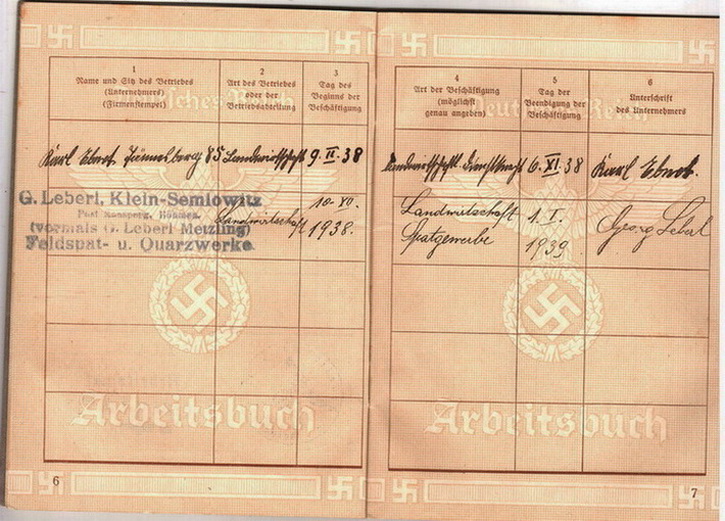 1
Name und Sitz des Betriebes
(Unternehmers)
(Firmenstempel)
2
Art des Betriebes
oder der
Betriebsabteilung
3
Tag des
Beginns der
Beschäftigung
Karl 85 Landwirtschaft 9. II. 38
G. Leberl, Klein-Semlowitz
Post Ronsperg, Böhmen.
(vormals G. Leberl Metzling)
Feldspat- u. Quarzwerke.
Landwirtschaft
10. XI.
1938.
Arbeitsbuch
6
4
Art der Beschäftigung
(möglichst
genau angeben)
5
Tag der
Beendigung der
Beschäftigung
6
Unterschrift
des Unternehmers
Deutsches Reich
Landwirtschaftl. 6. XI. 38 Karl
Landwirtschaft 1. I. Georg Leberl
1939
Arbeitsbuch
7